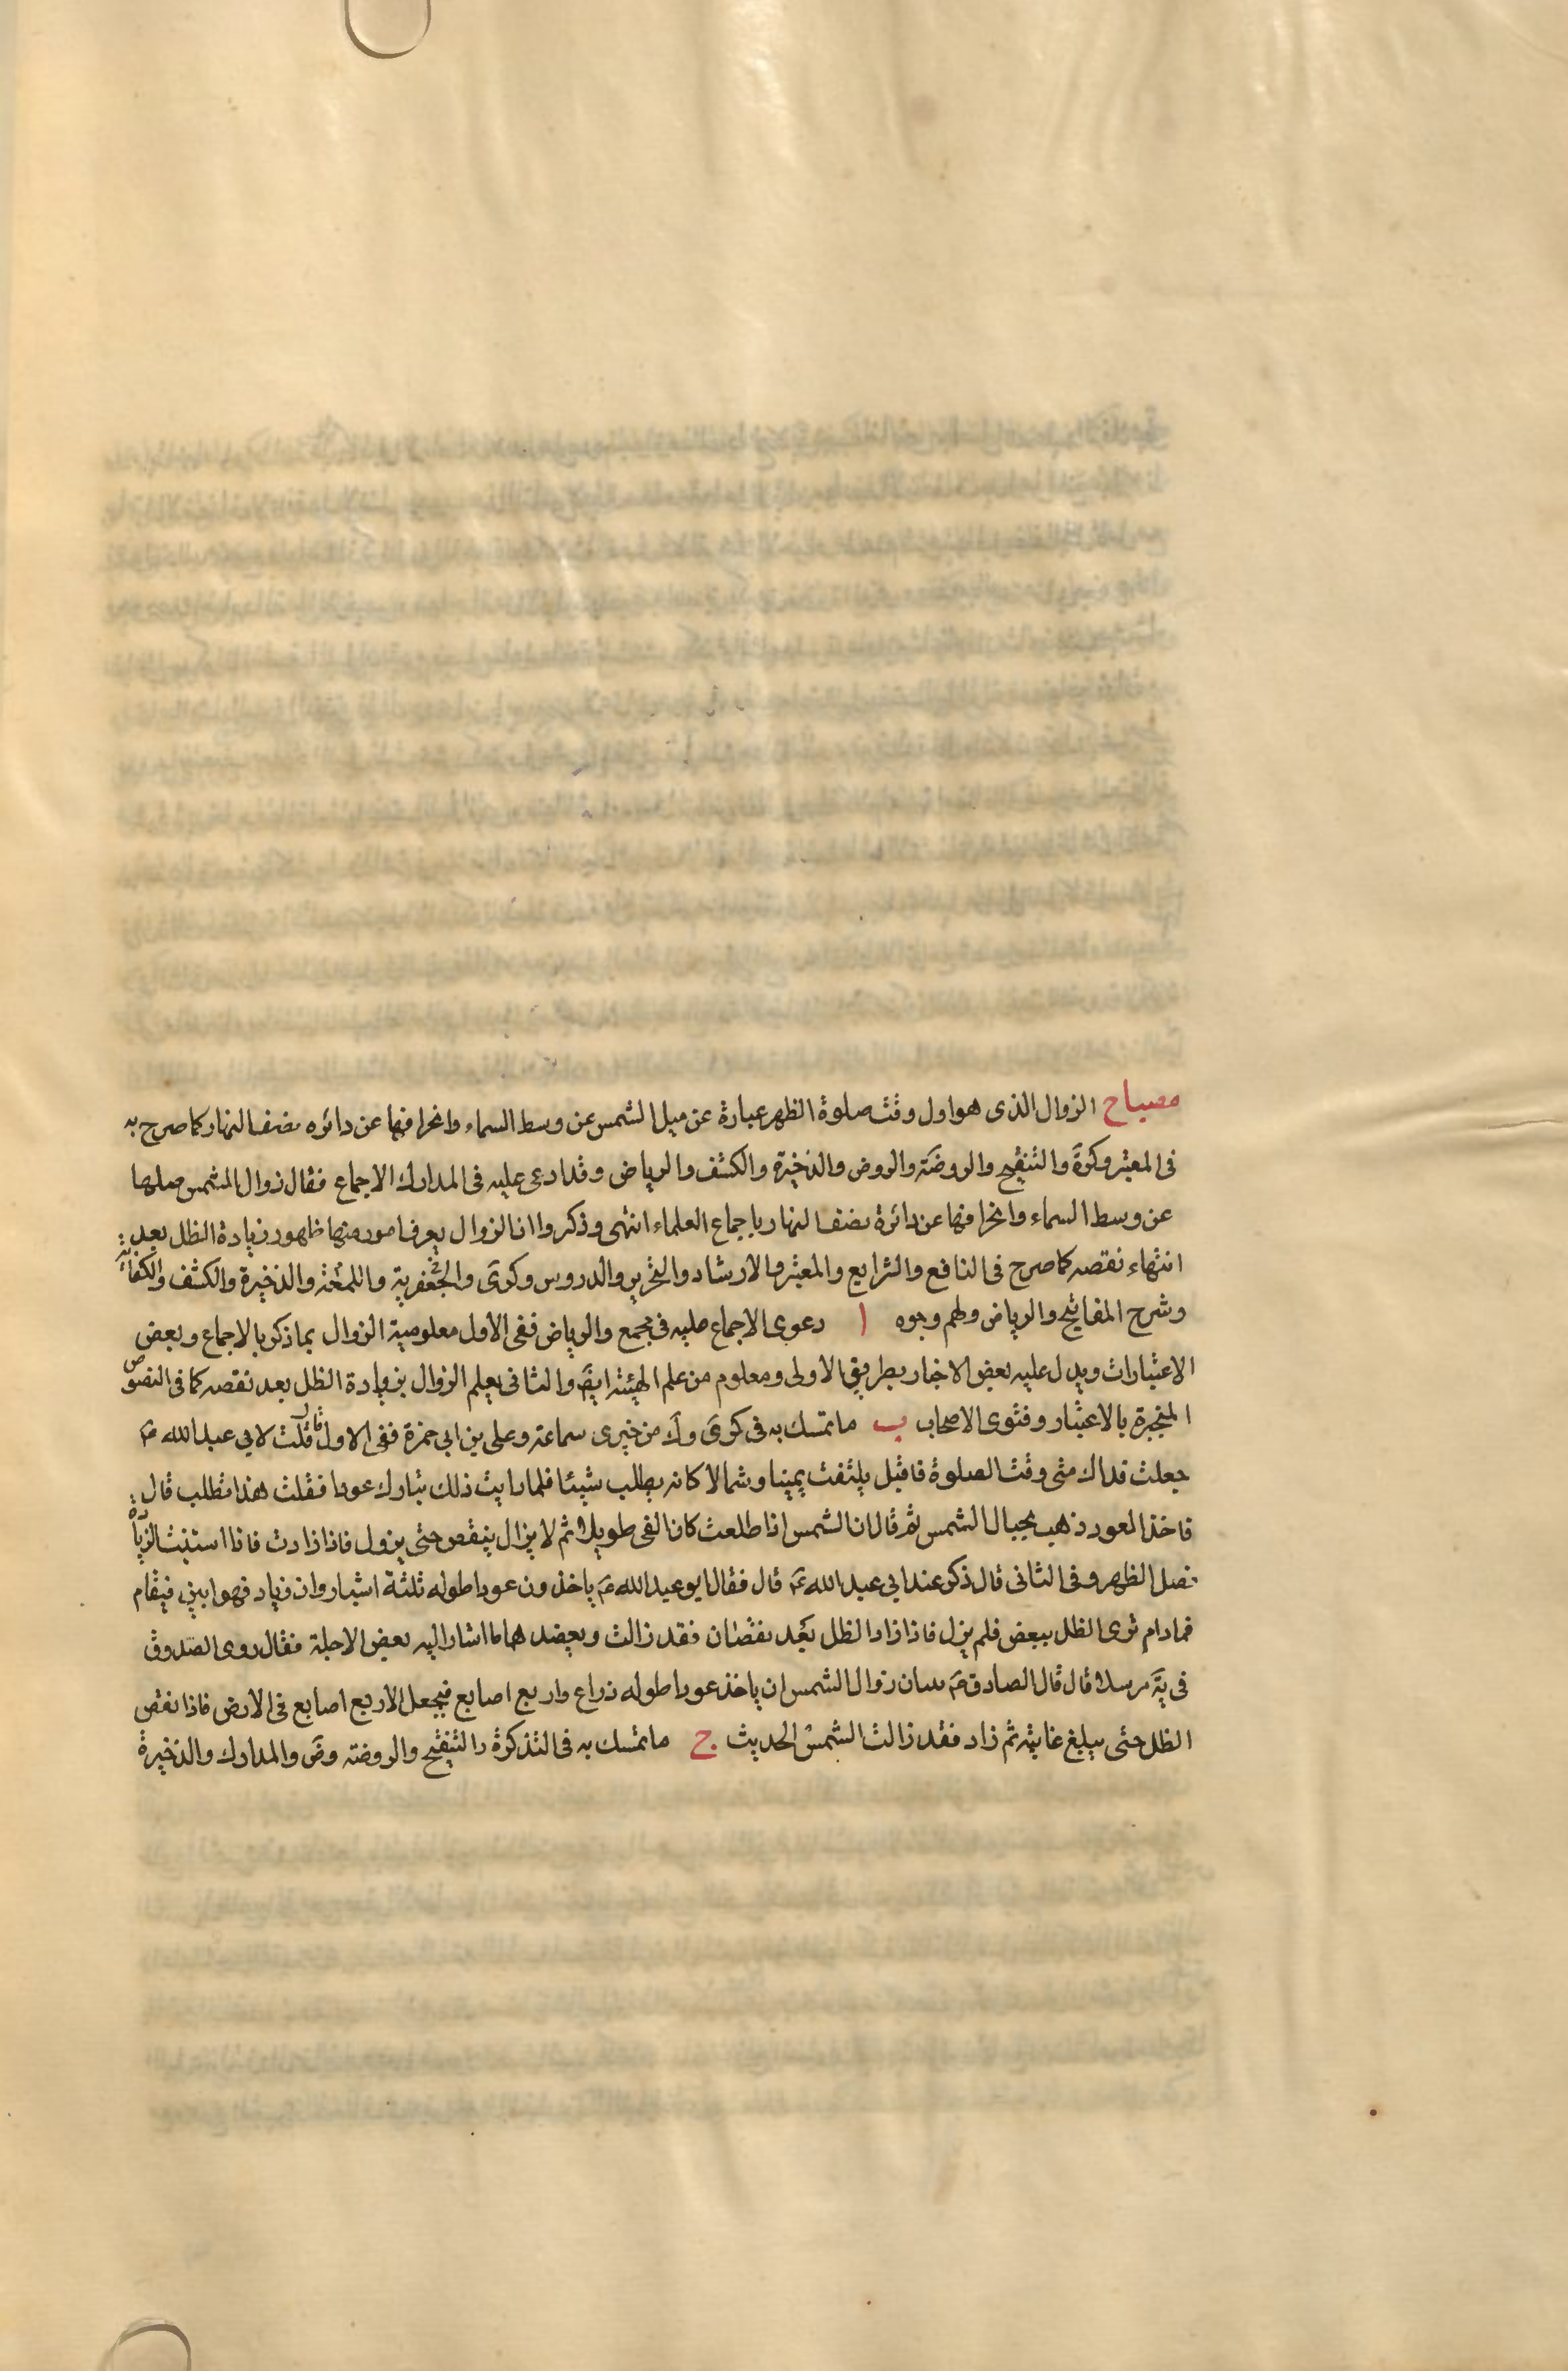 مصباح الزوال الذى هو اول وقت صلوة الظهر عبارة عن ميل الشمس عن وسط السماء وانحرافها عن دائره نصف النهار كما صرح به
فى المعتبر وكرة والتنقيح والروضة والروض والذخيرة والكشف والرياض وقد ادعى عليه فى المدارك الاجماع فقال زوال الشمس ميلها
عن وسط السماء وانحرافها عن دائرة نصف النهار باجماع العلماء انتهى وذكروا ان الزوال يعرف امور منها ظهور زيادة الظل بعد
انتهاء نقصه كما صرح فى النافع والشرايع والمعتبر والارشاد والتحرير والدروس وكرى والجعفرية واللمعة والذخيرة والكشف والكفاية
وشرح المفاتيح والرياض ولهم وجوه ا دعوى الاجماع عليه فى مجمع والرياض ففى الاول معلومية الزوال بما ذكر بالاجماع وبعض
الاعتبارات ويدل عليه بعض الاخبار بطريق الاولى ومعلوم من علم الهيئة ايضَ والثانى يعلم الزوال بزيادة الظل بعد نقصه كما فى النصوص
المنجبرة بالاعتبار وفتوى الاصحاب ب ما تمسك به فى كرى وك من خبرى سماعة وعلى بن ابى حمزة ففى الاول قال قلت لابى عبد الله عَ
جعلت فداك متى وقت الصلوة فاقبل يلتفت يمينا وشمالا كانه يطلب شيئا فلما رايت ذلك تناولت عودا فقلت هذا تطلب قال
فاخذ العود ذهب بحيال الشمس ثم قال ان الشمس اذا طلعت كان الفى طويلا ثم لا يزال ينقص حتى يزول فاذا زادت فاذا استبنت الزيادة
فصل الظهر وفى الثانى قال ذكر عند ابى عبد الله عَ قال فقال ابو عبد الله عَ ياخذون عودا طوله ثلثة اشبار وان زياد فهو ابين فيقام
فمادام ترى الظل ينقص فلم يزل فاذا زاد الظل بعد نقصان فقد زالت ويعضدهما ما اشار اليه بعض الاجلة فقال روى الصدوق
فى يَه مرسلا قال قال الصادق عَ تبيان زوال الشمس ان ياخذ عودا طوله ذراع واربع اصابع فيجعل الاربع اصابع فى الارض فاذا نقص
الظل حتى يبلغ غايته ثم زاد فقد زالت الشمس الحديث ج ما تمسك به فى التذكرة والتنقيح والروضة وض والمدارك والذخيرة